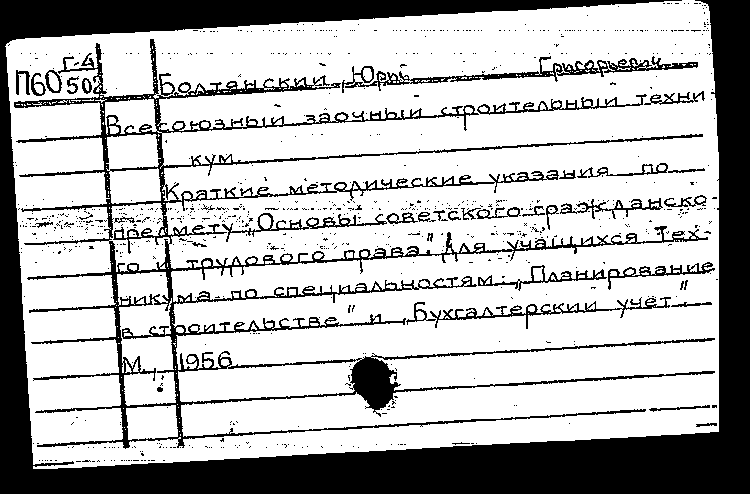 Г-4
П60 502 Болтянский, Юрий Григорьевич
Всесоюзный заочный строительный техни
кум.
Краткие методические указания по
предмету „Основы советского гражданско-
го и трудового права." Для учащихся Тех-
никума по специальностям: „Планирование
в строительстве" и „Бухгалтерский учёт".
М., 1956